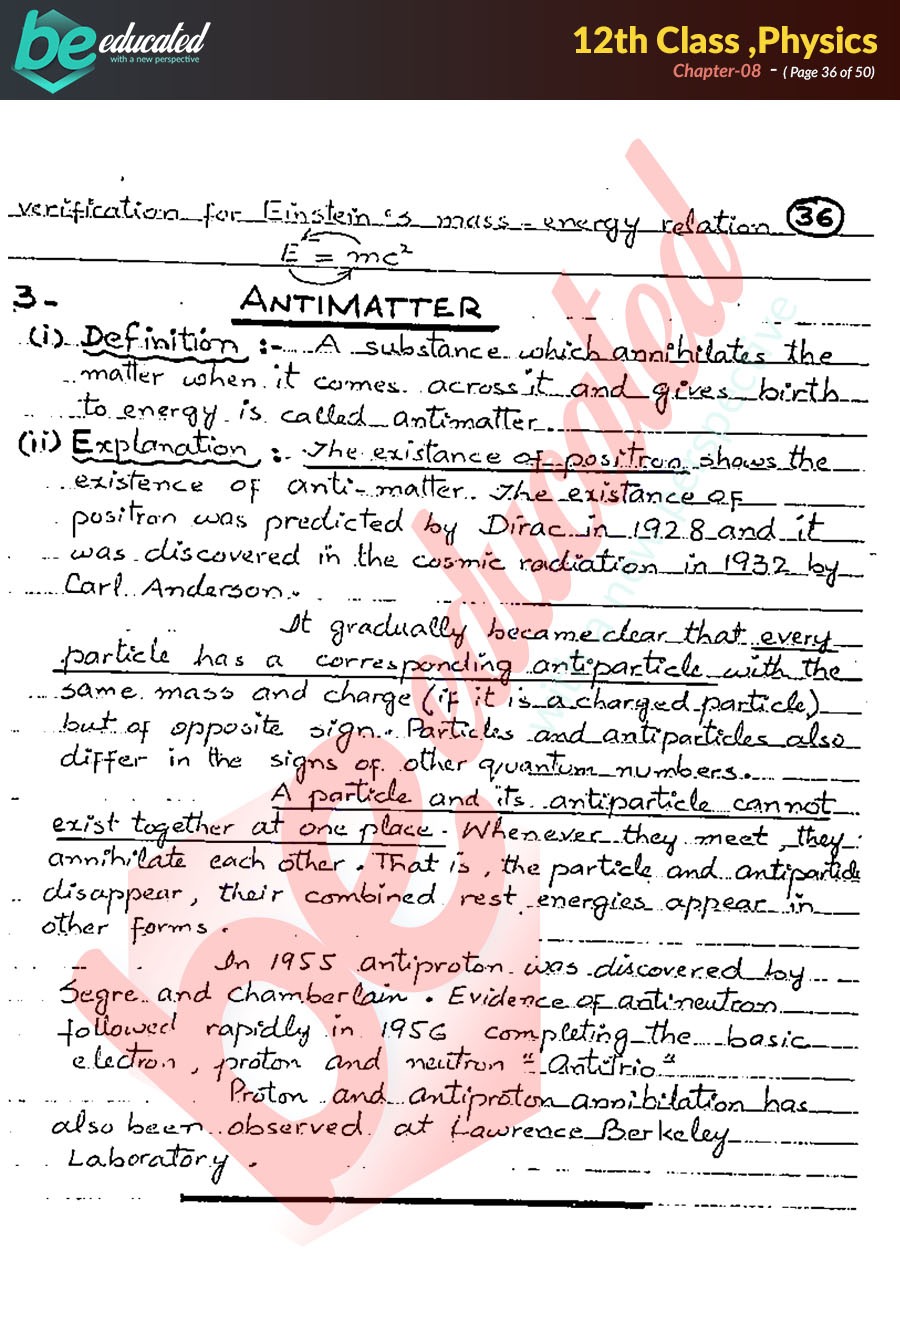 be educated
with a new perspective
12th Class ,Physics
Chapter-08 - ( Page 36 of 50)
verification for Einstein's mass-energy relation 36
E = mc²
3- ANTIMATTER
(i) Definition :- A substance which annihilates the
matter when it comes across it and gives birth
to energy is called antimatter.
(ii) Explanation :- The existance of positron shows the
existence of anti-matter. The existance of
positron was predicted by Dirac in 1928 and it
was discovered in the cosmic radiation in 1932 by
Carl Anderson.
It gradually became clear that every
particle has a corresponding antiparticle with the
same mass and charge (if it is a charged particle)
but of opposite sign. Particles and antiparticles also
differ in the signs of other quantum numbers.
A particle and its antiparticle cannot
exist together at one place. Whenever they meet, they
annihilate each other. That is, the particle and antiparticle
disappear, their combined rest energies appear in
other forms.
In 1955 antiproton was discovered by
Segre and Chamberlain. Evidence of antineutron
followed rapidly in 1956 completing the basic
electron, proton and neutron "Antitrio"
Proton and antiproton annibilation has
also been observed at Lawrence Berkeley
Laboratory.
be educated
with a new perspective